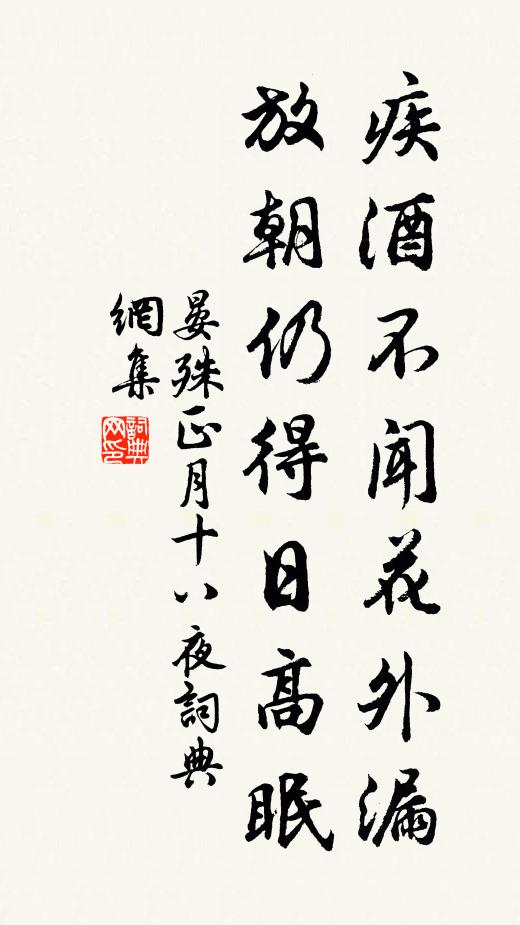 疾酒不闻花外漏
放朝仍得日高眠
晏殊正月十八夜詞典
網集
詞典
网印